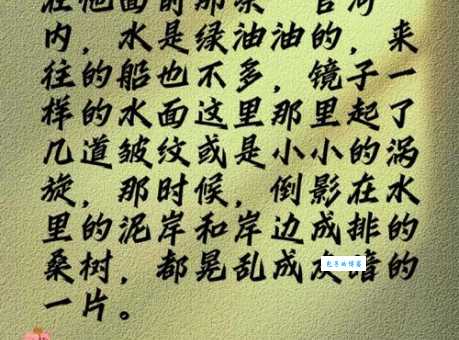 在他面前那条“官河”
内，水是绿油油的，来
往的船也不多，镜子一
样的水面这里那里起了
几道皱纹或是小小的涡
旋，那时候，倒影在水
里的泥岸和岸边成排的
桑树，都晃乱成灰暗的
一片。